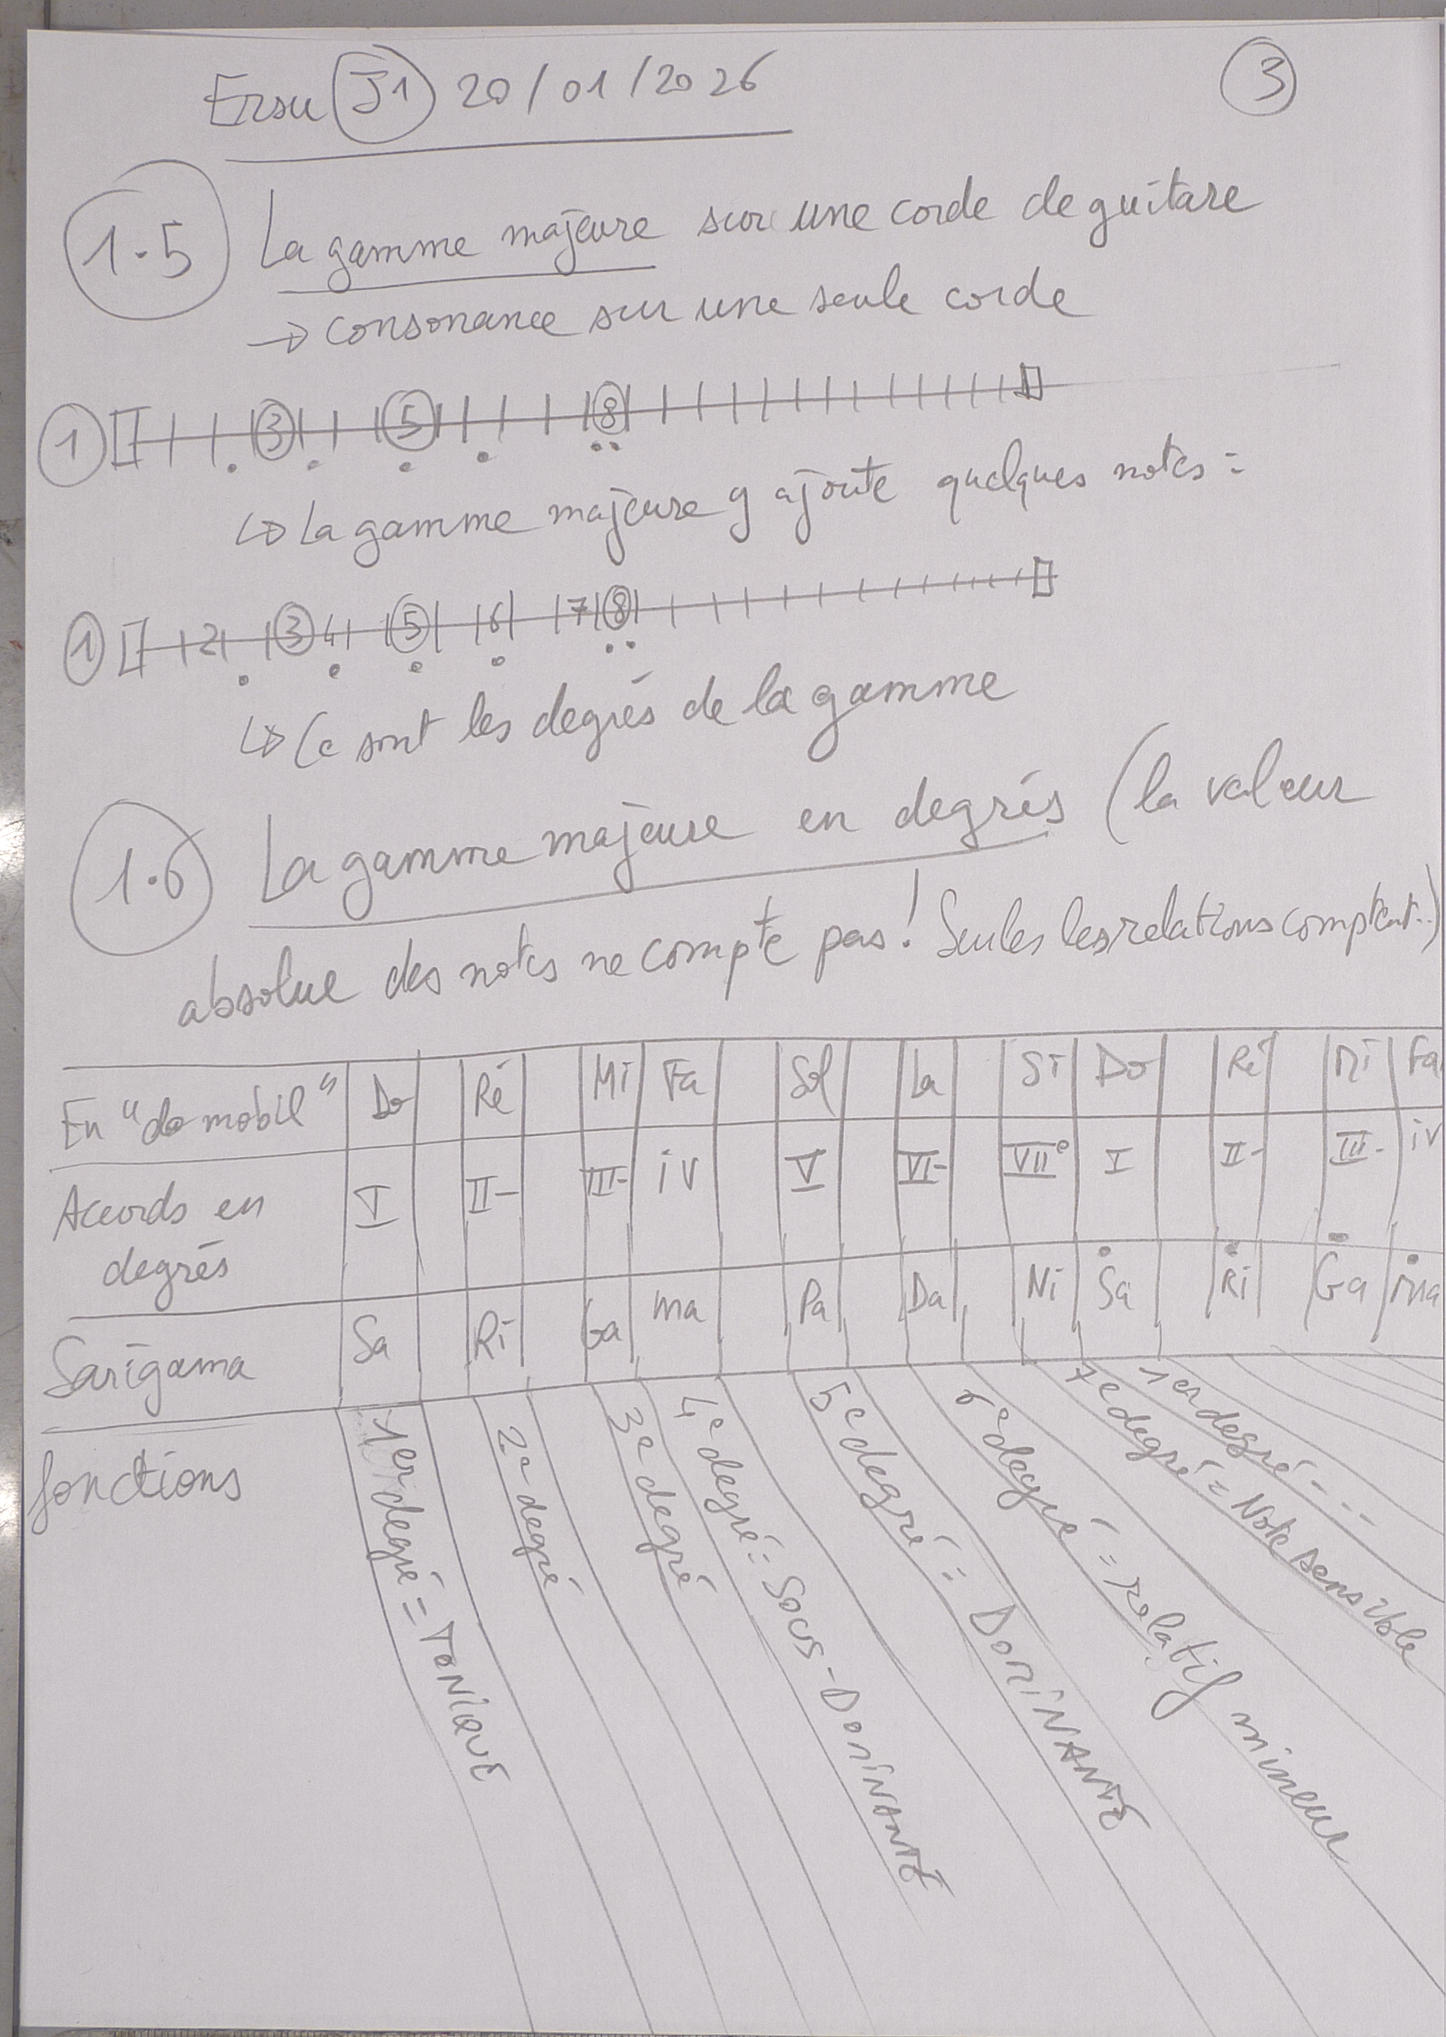 Ersu J1 20/01/2026
3
1.5 La gamme majeure sur une corde de guitare
→ consonance sur une seule corde
1 3 5 8
↳ La gamme majeure y ajoute quelques notes :
1 2 3 4 5 6 7 8
↳ Ce sont les degrés de la gamme
1.6 La gamme majeure en degrés (la valeur
absolue des notes ne compte pas! Seules les relations comptent..)
En "do mobil" Do Ré Mi Fa Sol La Si Do Ré Mi Fa
Accords en degrés I II- III- iV V VI- VII° I II- III- iV
Sarigama Sa Ri Ga ma Pa Da Ni Sa Ri Ga ma
fonctions
1er degré = TONIQUE
2e degré
3e degré
4e degré = SOUS-DOMINANTE
5e degré = DOMINANTE
6e degré = relatif mineur
7e degré = Note sensible
1er degré...